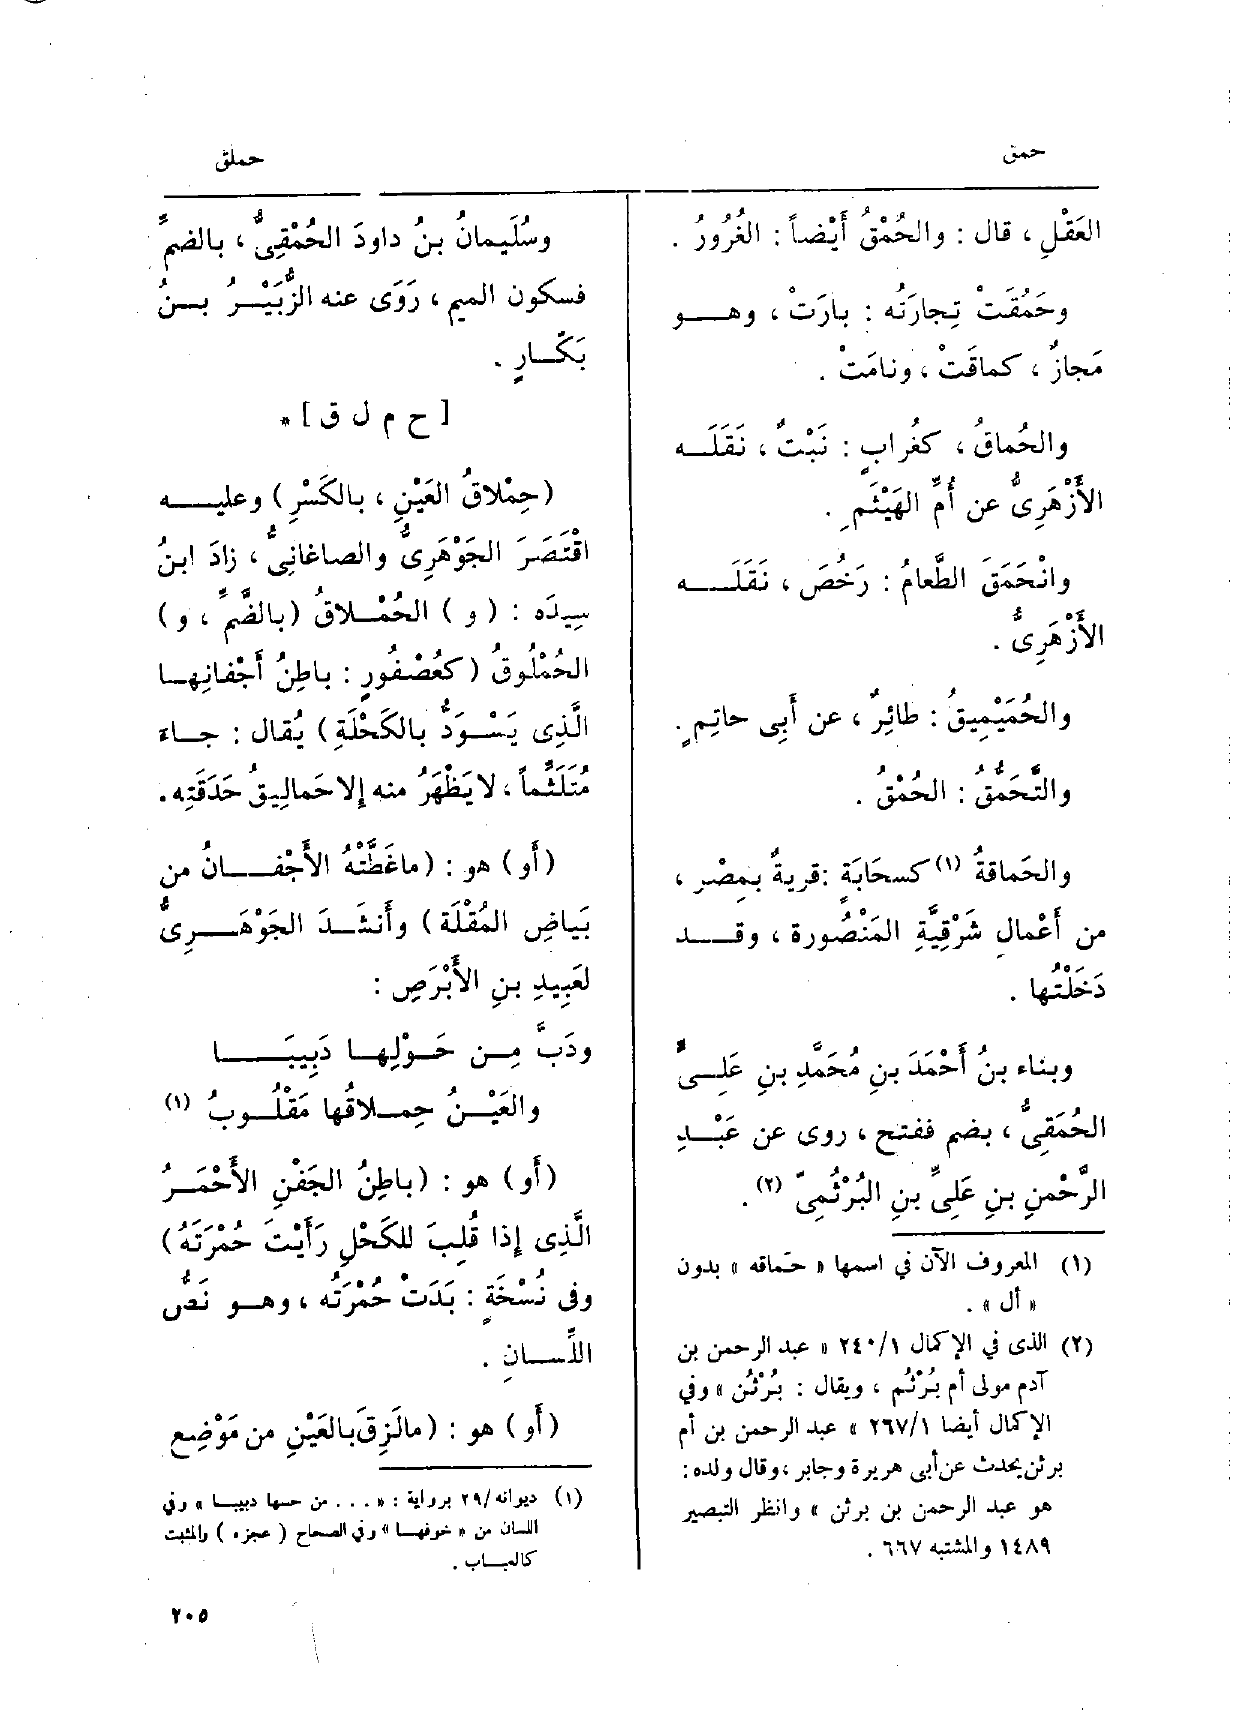 حمق
حملق
العَقْلِ ، قال : والحُمْقُ أَيْضاً : الغُرُورُ .
وحَمُقَتْ تِجارَتُه : بارَتْ ، وهــو
مَجازٌ ، كماقَتْ ، ونامَتْ .
والحُماقُ ، كغُرابٍ : نَبْتٌ ، نَقَلَــه
الأَزْهَرِىُّ عن أُمِّ الهَيْثَمِ .
وانْحَمَقَ الطَّعامُ : رَخُصَ ، نَقَلَــه
الأَزْهَرِىُّ .
والحُمَيْمِيقُ : طائِرٌ ، عن أَبِى حاتِمٍ .
والتَّحَمُّقُ : الحُمْقُ .
والحَماقةُ (١) كسحَابَةٍ : قريةٌ بمِصْرِ ،
من أَعْمالِ شَرْقِيَّةِ المَنْصُورة ، وقــد
دَخَلْتُها .
وبناء بنُ أَحْمَدَ بنِ مُحَمَّدِ بنِ عَلِــىٍّ
الحُمَقِىُّ ، بضم ففتح ، روى عن عَبْــدِ
الرَّحْمنِ بنِ عَلِىِّ بنِ البُرْثُمِىّ (٢) .
(١) المعروف الآن في اسمها « حماقه » بدون
« أل » .
(٢) الذى في الإكمال ٢٤٠/١ « عبد الرحمن بن
آدم مولى أم بُرْثُم ، ويقال : بُرْثُن » وفي
الإكمال أيضا ٢٦٧/١ « عبد الرحمن بن أم
برثن يحدث عن أبى هريرة وجابر ، وقال ولده :
هو عبد الرحمن بن برثن » وانظر التبصير
١٤٨٩ والمشتبه ٦٦٧ .
وسُلَيمانُ بنُ داودَ الحُمْقِىُّ ، بالضمِّ
فسكون الميم ، رَوَى عنه الزُّبَيْــرُ بــنُ
بَكّــارٍ .
[ ح م ل ق ] *
(حِمْلاقُ العَيْنِ ، بالكَسْرِ) وعليــه
اقْتَصَرَ الجَوْهَرِىُّ والصاغانِىُّ ، زادَ ابنُ
سِيدَه : (و) الحُمْــلاقُ (بالضَّمِّ ، و)
الحُمْلُوقُ (كعُصْفُورٍ : باطِنُ أَجْفانِهــا
الَّذِى يَسْــوَدُّ بالكَحْلَةِ) يُقال : جــاءَ
مُتَلَثِّماً ، لا يَظْهَرُ منه إلا حَمالِيقُ حَدَقَتِه .
(أَو) هو : (ما غَطَّتْهُ الأَجْفــانُ من
بَيَاضِ المُقْلَة) وأَنشَــدَ الجَوْهَــرِىُّ
لعَبِيدِ بنِ الأَبْرَصِ :
ودَبَّ مِــن حَــوْلِهــا دَبِيبَــــا
والعَيْــنُ حِمــلاقُها مَقْلُــوبُ (١)
(أَو) هو : (باطِنُ الجَفْنِ الأَحْمَــرُ
الَّذِى إذا قُلِبَ للكَحْلِ رَأَيْتَ حُمْرَتَهُ)
وفى نُسْخَةٍ : بَدَتْ حُمْرَتُه ، وهــو نَصُّ
اللِّســانِ .
(أَو) هو : (ما لَزِقَ بالعَيْنِ من مَوْضِع
(١) ديوانه/٢٩ برواية : « ... من حسها دبيبــا » وفي
اللسان من « خوفهــا » وفي الصحاح ( عجزه ) والمثبت
كالعبــاب .
٢٠٥